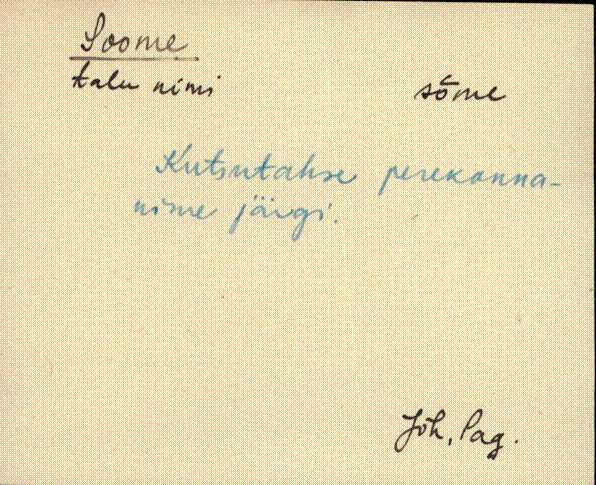 Soome
talu nimi sōme
Kutsutahse perekonna-
nime järgi.
Jõh, Pag.